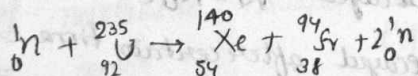 ¹₀n + ²³⁵₉₂U → ¹⁴⁰₅₄Xe + ⁹⁴₃₈Sr + 2¹₀n